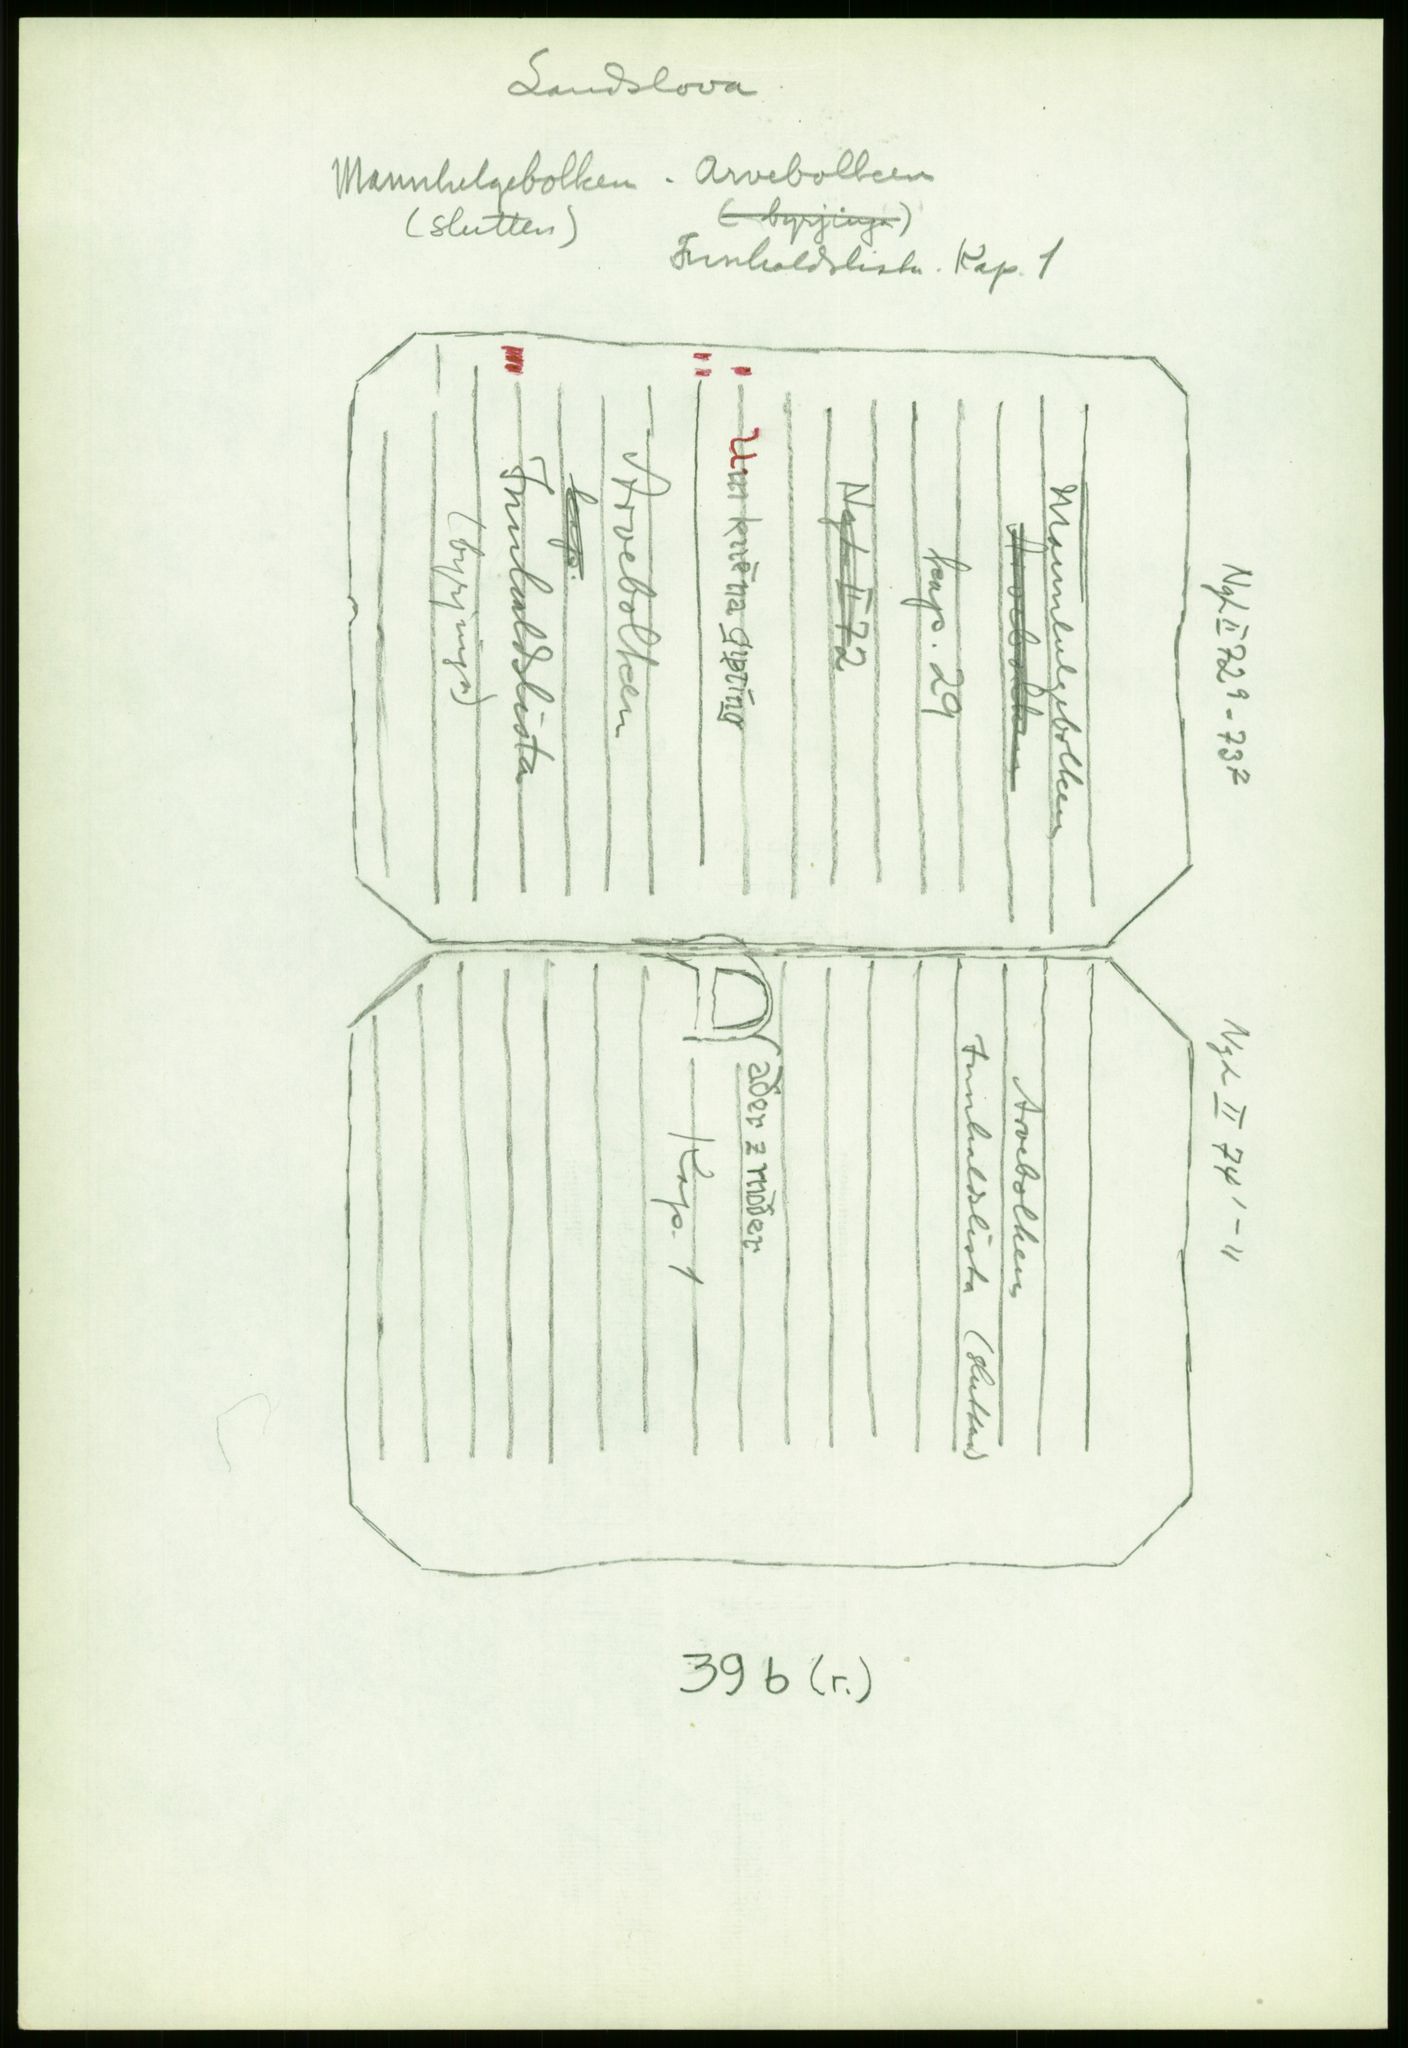 Landslova
Mannhelgebolken - Arvebolken
(slutten) (byrjinga)
Innhaldslista. Kap. 1
Ngl II 72⁹-73²
Mannhelgebolken
Arvebolken
kap. 29
Ngl II 72
Um kuēna gipting
Arvebolken
kap.
Innhaldslista
(byrjinga)
Ngl II 74¹-¹¹
Arvebolken
Innhaldslista (slutten)
aðer z móðer
Kap. 1
39 b (r.)